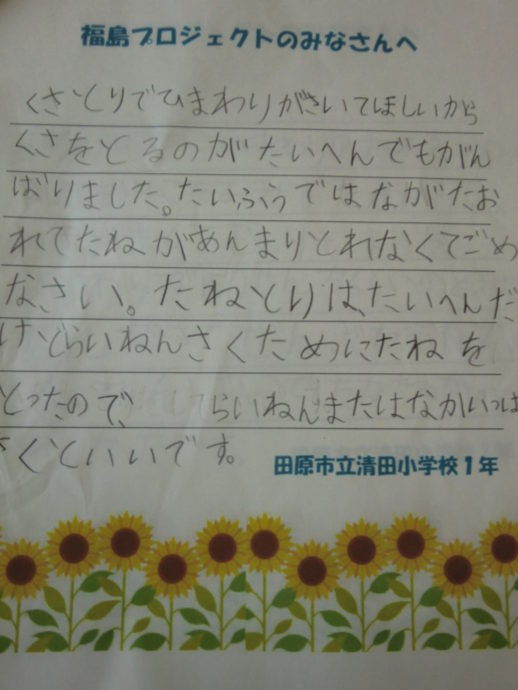 福島プロジェクトのみなさんへ
くさとりでひまわりがさいてほしいから
くさをとるのがたいへんでもがん
ばりました。たいふうではながたお
れてたねがあんまりとれなくてごめ
なさい。たねとりは、たいへんだ
けどらいねんさくためにたねを
とったので、らいねんまたはながいっぱ
さくといいです。
田原市立清田小学校1年